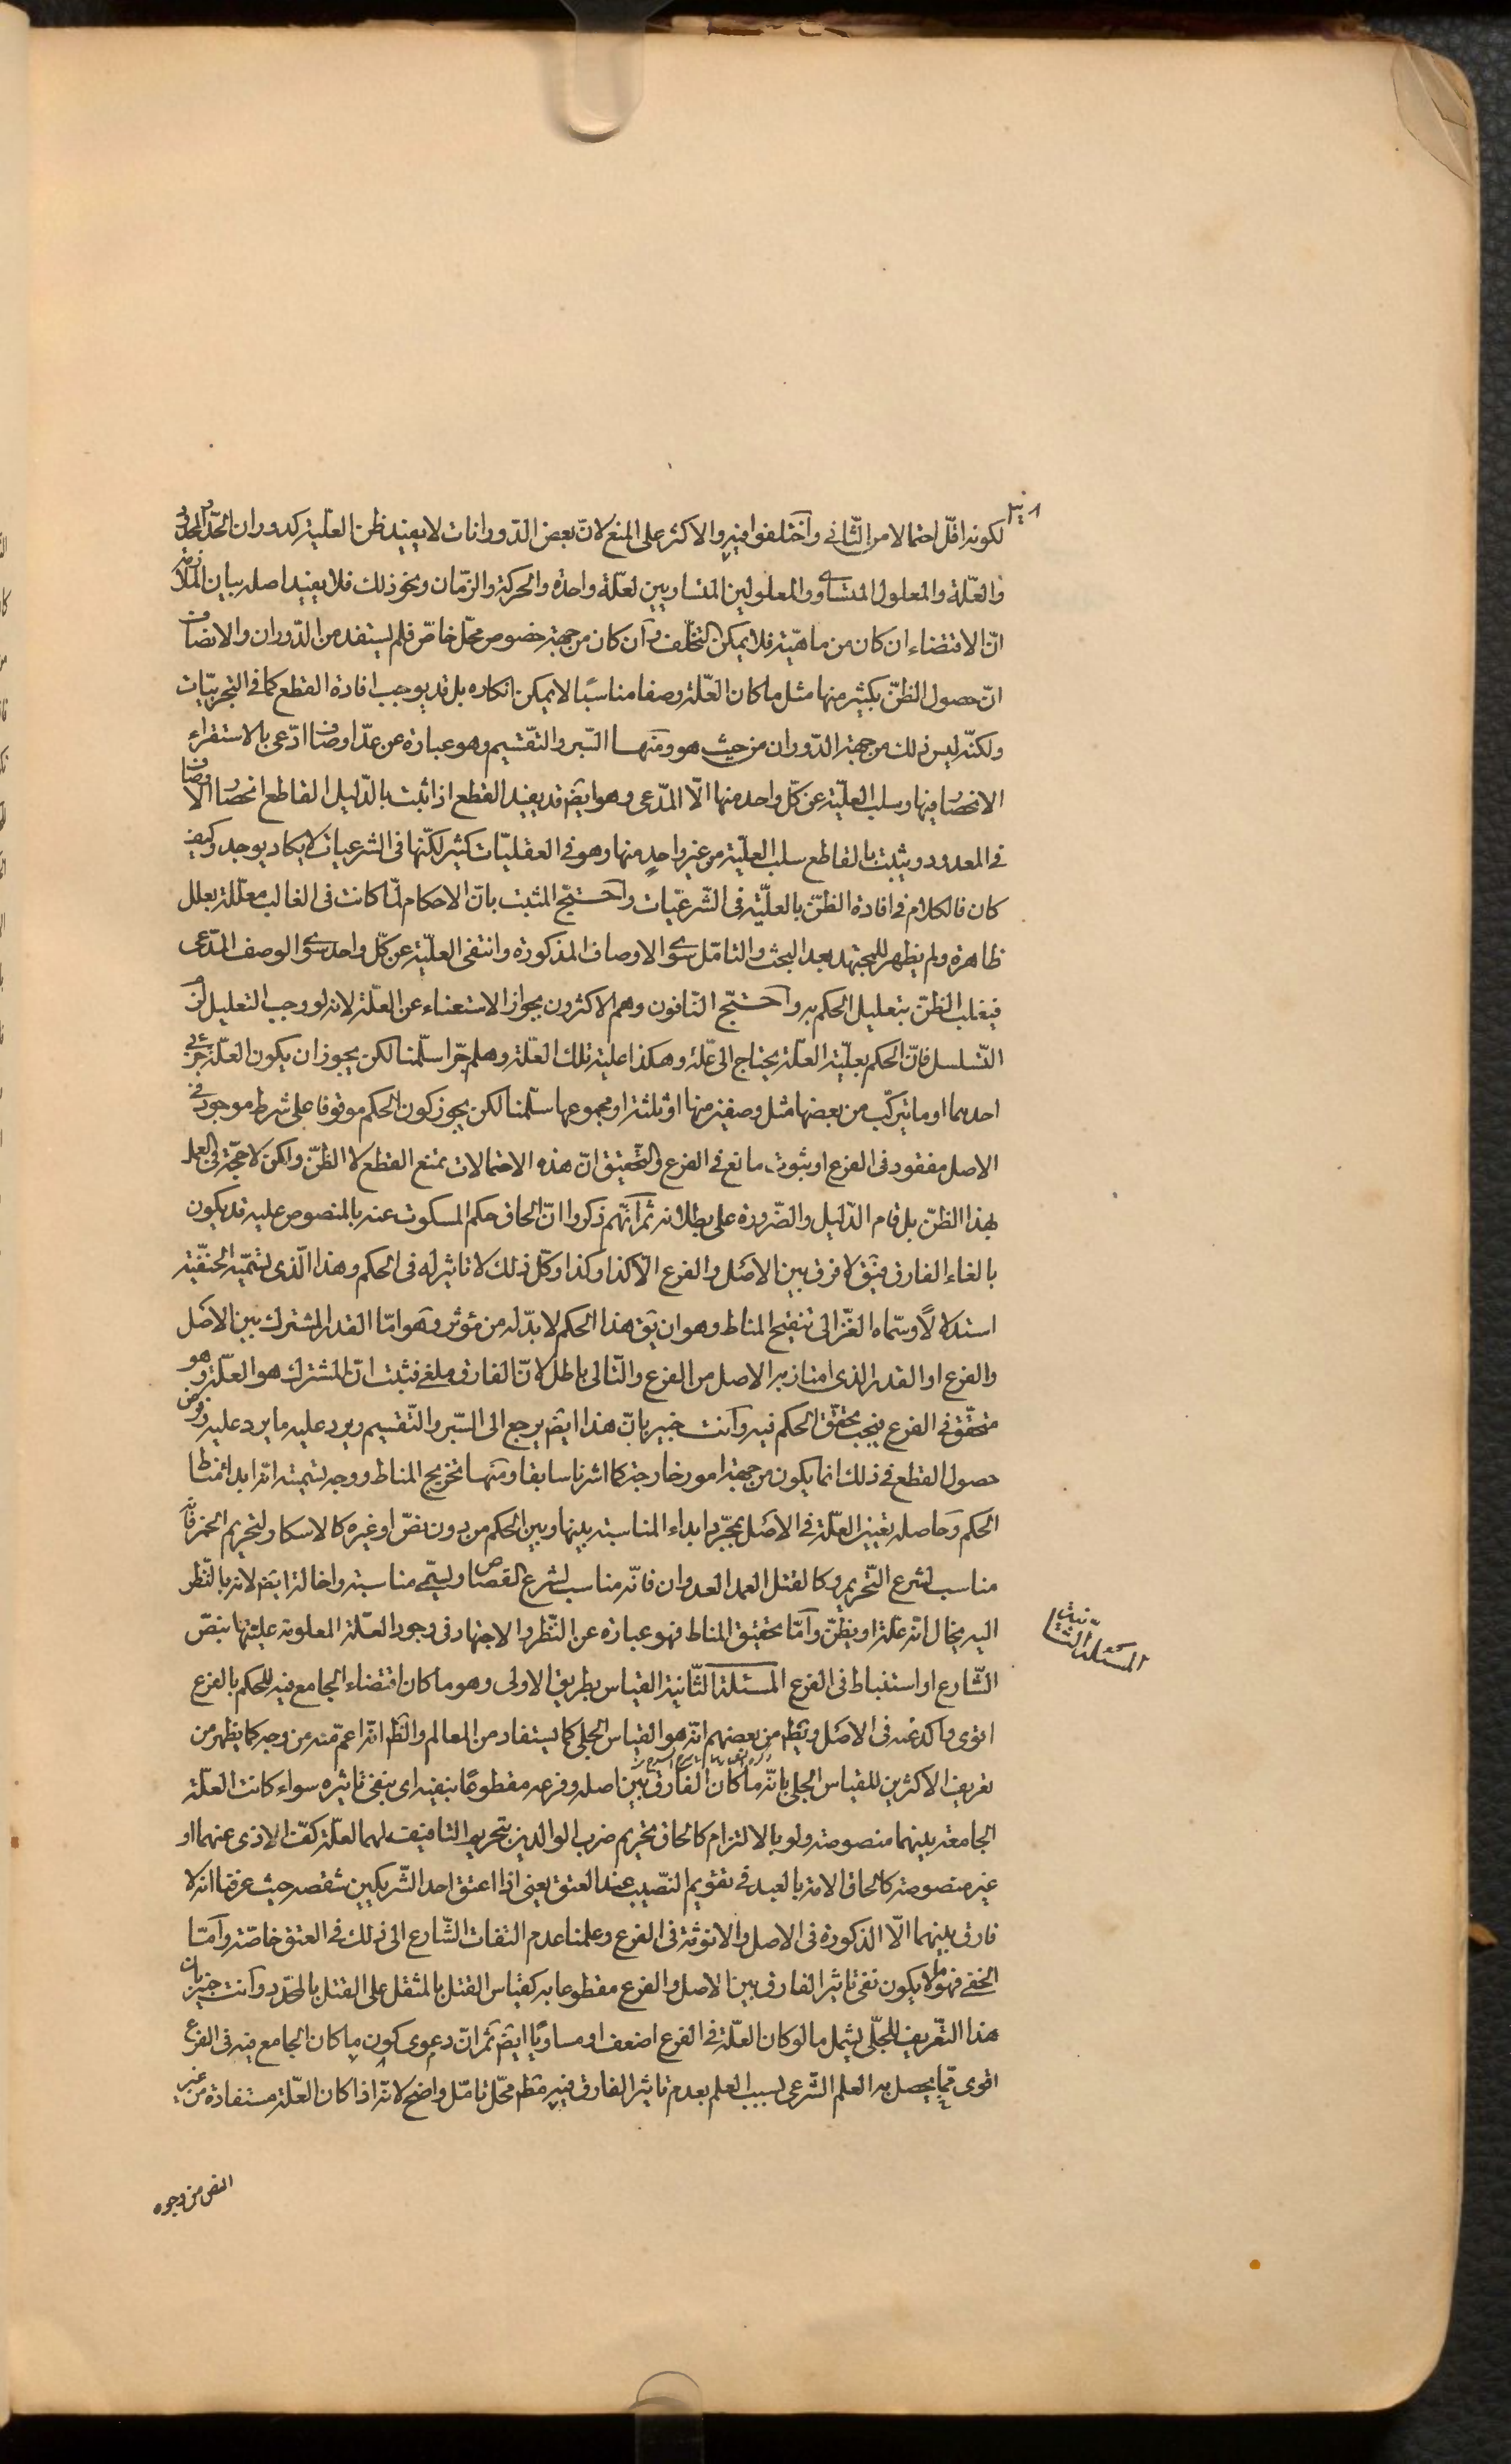 لكونه اقلّ احتمالا من الثّانى واختلفوا فيه والاكثر على المنع لانّ بعض الدّورانات لا يفيد ظن العلّية كدوران الحدّ والمحدود
والعلّة والمعلول المتساوى والمعلولين المتساويين لعلّة واحدة والحركة والزّمان ونحو ذلك فلا يفيد اصله بيان الملازمة
انّ الاقتضاء ان كان من ماهيّته فلا يمكن التخلّف وان كان من جهة خصوص محلّ خاصّ فلم يستفد من الدّوران والانصاف
انّ حصول الظنّ بكثير منها مثل ما كان العلّة وصفا مناسبًا لا يمكن انكاره بل قد يوجب افادة القطع كما فى التجربيّات
ولكنّه ليس ذلك من جهة الدّوران من حيث هو ومنها السّبر والتّقسيم وهو عبارة عن عدّ اوصاف ادّعى بالاستقراء
الانحصار فيها وسلب العليّة عن كلّ واحد منها الّا المدّعى وهو ايضا قد يفيد القطع اذا ثبت بالدّليل القاطع انحصار الاوصاف
فى المعدود ويثبت بالقاطع سلب العليّة من غير واحد منها وهو فى العقليّات كثير لكنّها فى الشرعيات لا يكاد يوجد وكيف
كان فالكلام فى افادة الظنّ بالعليّة فى الشّرعيّات واحتجّ المثبت بانّ الاحكام لمّا كانت فى الغالب معلّلة بعلل
ظاهرة ولم يظهر للمجتهد بعد البحث والتامّل سوى الاوصاف المذكورة وانتفى العليّة عن كلّ واحد سوى الوصف المدّعى
فيغلب الظنّ بتعليل الحكم به واحتجّ النّافون وهم الاكثرون بجواز الاستغناء عن العلّة لانه لو وجب التعليل لزم
التّسلسل فانّ الحكم بعليّة العلّة يحتاج الى علّة وهكذا علية تلك العلّة وهلم جرّا سلّمنا لكن يجوز ان يكون العلّة جزئى
احدهما او ما تركّب من بعضها مثل وصفين منها او ثلثة او مجموعها سلّمنا لكن يجوز كون الحكم موقوفا على شرط موجود فى
الاصل مفقود فى الفرع او ثبوت مانع فى الفرع والتّحقيق انّ هذه الاحتمالات تمنع القطع لا الظنّ ولكن لا حجّة فى العمل
بهذا الظنّ بل قام الدّليل والضّرورة على بطلانه ثمّ انّهم ذكروا انّ الحاق حكم المسكوت عنه بالمنصوص عليه قد يكون
بالغاء الفارق فيق لا فرق بين الاصل والفرع الّا كذا وكذا وكلّ ذلك لا تاثير له فى الحكم وهذا الّذى يسمّيه الحنفيّة
استدلالًا وسمّاه الغزّالى تنقيح المناط وهو ان يق هذا الحكم لا بدّ له من مؤثر وهو امّا القدر المشترك بين الاصل
والفرع او القدر الذى امتاز به الاصل من الفرع والتّالى باطل لانّ الفارق ملغى فثبت انّ المشترك هو العلّة وهو
متحقّق فى الفرع فيجب تحقّق الحكم فيه وانت خبير بانّ هذا ايضا يرجع الى السّبر والتّقسيم ويرد عليه ما يرد عليه وفرض
حصول القطع فى ذلك انما يكون من جهة امور خارجة كما اشرنا سابقا ومنها تخريج المناط ووجه تسميته انّه ابداء مناط
الحكم وحاصله تعيين العلّة فى الاصل بمجرّد ابداء المناسبة بينها وبين الحكم من دون نصّ او غيره كالاسكار لتحريم الخمر فانّه
مناسب لشرع التّحريم وكالقتل العمد العدوان فانّه مناسب لشرع القصاص ويسمّى مناسبة واخالة ايضا لانه بالنّظر
اليه يخال انّه علّة او يظنّ وامّا تحقيق المناط فهو عبارة عن النّظر والاجتهاد فى وجود العلّة المعلومة عليّتها بنصّ
المسئلة الثّانية
الشّارع او استنباط فى الفرع المسئلة الثّانية القياس بطريق الاولى وهو ما كان اقتضاء الجامع فيه للحكم بالفرع
اقوى واكد منه فى الاصل ويظهر من بعضهم انّه هو القياس الجلى كما يستفاد من المعالم والظّ انّه اعمّ منه من وجه كما يظهر من
تعريف الاكثرين للقياس الجلى بانّه ما كان الفارق بين اصله وفرعه مقطوعًا بنفيه اى بنفى تاثيره سواء كانت العلّة
الجامعة بينهما منصوصة ولو بالالتزام كالحاق تحريم ضرب الوالدين بتحريم التافيف لهما لعلّة كفّ الاذى عنهما او
غير منصوصة كالحاق الامة بالعبد فى تقويم النّصيب عند العتق يعنى اذا اعتق احد الشّريكين شقصه حيث عرفنا انه لا
فارق بينهما الّا الذكورة فى الاصل والانوثة فى الفرع وعلمنا عدم التفات الشّارع الى ذلك فى العتق خاصّة وامّا
الخفى فهو ما لا يكون نفى تاثير الفارق بين الاصل والفرع مقطوعا به كقياس القتل بالمثقل على القتل بالمحدّد وانت خبير بان
هذا التّعريف للجلّى يشمل ما لو كان العلّة فى الفرع اضعف او مساويًا ايضا ثمّ انّ دعوى كون ما كان الجامع فيه فى الفرع
اقوى ممّا يحصل به العلم الشّرعى لسبب العلم بعدم تاثير الفارق فيه مطم محّل تامّل واضح لانّه اذا كان العلّة مستفادة من غير
النص من وجوه